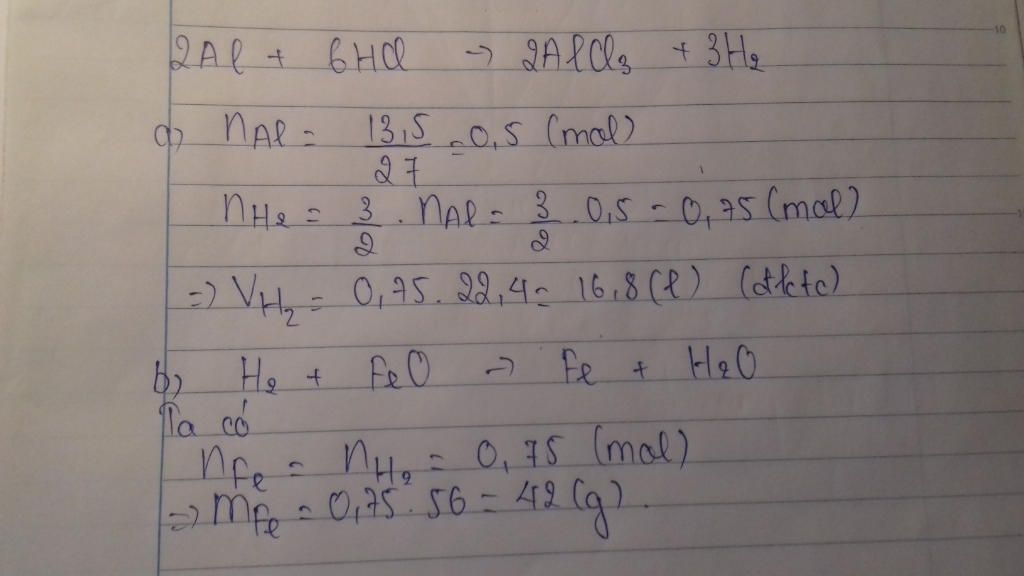 2Al + 6HCl → 2AlCl₃ + 3H₂
a) nAl = 13,5/27 = 0,5 (mol)
nH₂ = 3/2 . nAl = 3/2 . 0,5 = 0,75 (mol)
=> VH₂ = 0,75. 22,4 = 16,8 (l) (đktc)
b) H₂ + FeO → Fe + H₂O
Ta có
nFe = nH₂ = 0,75 (mol)
=> mFe = 0,75. 56 = 42 (g).